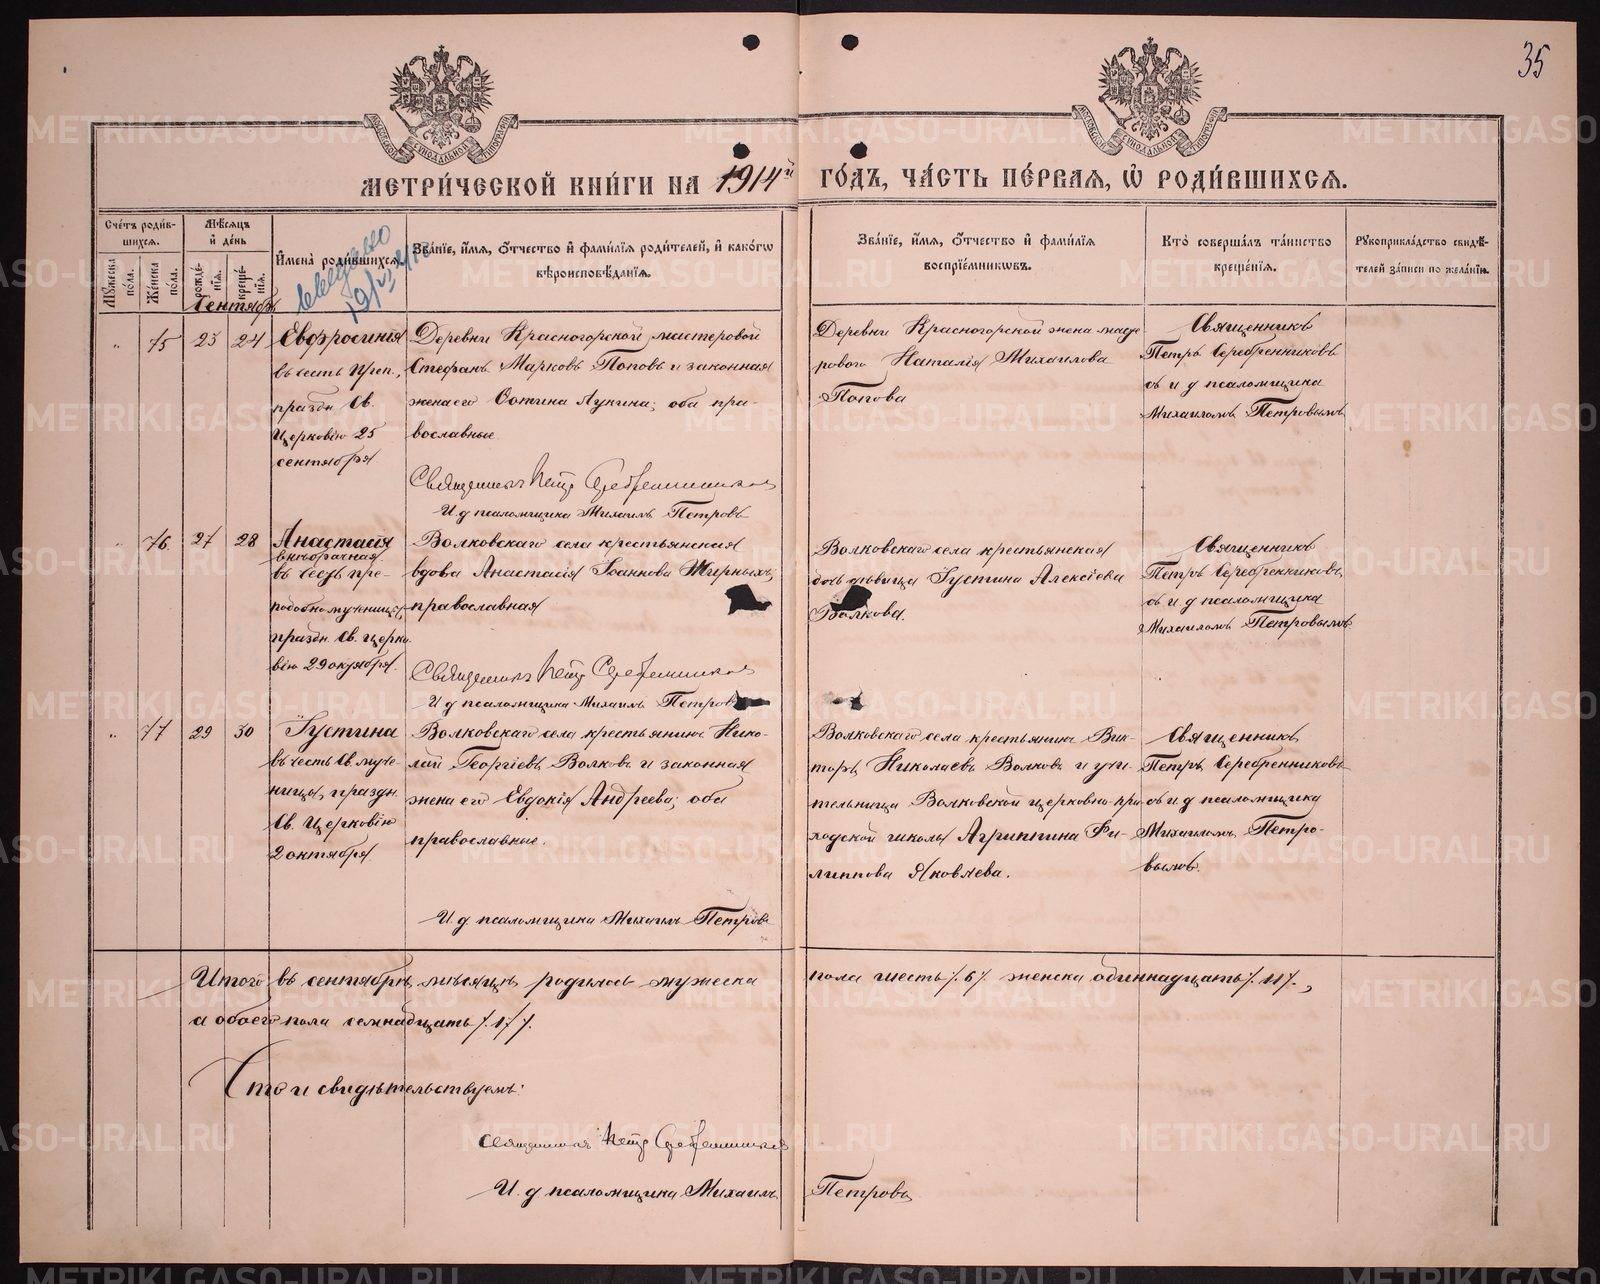 35
МЕТРИ́ЧЕСКОЙ КНИ́ГИ НА 1914й ГО́ДЪ, ЧА́СТЬ ПЕ́РВАЯ, Ѡ РОДИ́ВШИХСЯ.
Сче́тъ роди́в-
шихся.
Му́жеска по́ла.
Же́нска по́ла.
Мѣ́сяцъ
и де́нь
рожде́-
нія.
креще́-
нія.
Имена̀ роди́вшихся.
Зва́ніе, и́мя, о́тчество и фами́лія роди́телей, и како́гѡ
вѣроисповѣ́данія.
Зва́ніе, и́мя, о́тчество и фами́лія
воспріе́мникѡвъ.
Кто̀ соверша́лъ та́инство
креще́нія.
Рукоприкла́дство свидѣ́-
телей за́писи по жела́нію.
Сентябрь
" 75 23 24
Евфросинія
въ честь Преп.,
праздн. Св.
Церковію 25
сентября
Деревни Красногорской мастеровой
Стефанъ Марковъ Поповъ и законная
жена его Фотина Лукина; оба пра-
вославные.
Священникъ Петр Серебренников
И. д. псаломщика Михаилъ Петровъ
Деревни Красногорской жена масте
рового Наталія Михаилова
Попова
Священникъ
Петръ Серебренниковъ
съ и. д. псаломщика
Михаиломъ Петровымъ
" 76. 27 28
Анастасія
внѣбрачная
въ честь пре-
подобномученицы,
праздн. Св. церко
вію 29 октября.
Волковскаго села крестьянская
вдова Анастасія Іоаннова Жирныхъ,
православная
Священникъ Петр Серебренников
И. д. псаломщика Михаилъ Петровъ
Волковскаго села крестьянская
дочь девица Іустина Алексіева
Волкова.
Священникъ
Петръ Серебренниковъ
съ и. д. псаломщика
Михаиломъ Петровымъ
" 77 29 30
Іустина
въ честь Св. муче-
ницы, праздн.
Св. Церковію
2 октября
Волковскаго села крестьянинъ Нико-
лай Георгіевъ Волковъ и законная
жена его Евдокія Андреева; оба
православные.
И. д. псаломщика Михаилъ Петровъ
Волковскаго села крестьянинъ Вик-
торъ Николаевъ Волковъ и учи-
тельница Волковской церковно-при
ходской школы Агриппина Фи-
липпова Яковлева.
Священникъ
Петръ Серебренниковъ
съ и. д. псаломщика
Михаиломъ Петро-
вымъ.
Итого въ сентябрѣ мѣсяцѣ родилось мужеска пола шесть /.6/. женска одиннадцать /.11/.,
а обоего пола семнадцать /.17/.
Что и свидѣтельствуемъ:
Священникъ Петр Серебренников
И. д. псаломщика Михаилъ Петровъ
METRIKI.GASO-URAL.RU